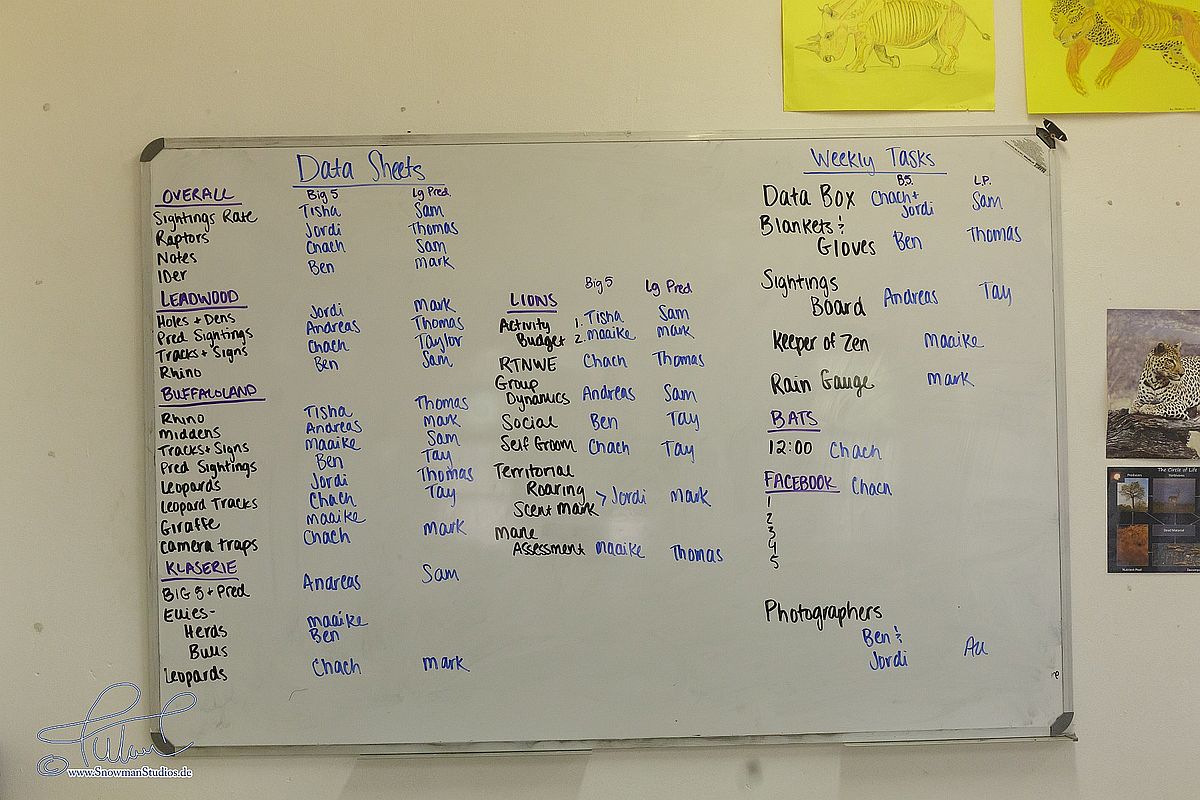 Data Sheets
OVERALL Big 5 Lg Pred.
Sightings Rate Tisha Sam
Raptors Jordi Thomas
Notes Chach Sam
IDer Ben Mark
LEADWOOD
Holes + Dens Jordi Mark
Pred Sightings Andreas Thomas
Tracks + Signs Chach Taylor
Rhino Ben Sam
BUFFALOLAND
Rhino Tisha Thomas
Middens Andreas Mark
Tracks + Signs Maaike Sam
Pred Sightings Ben Tay
Leopards Jordi Thomas
Leopard Tracks Chach Tay
Giraffe Maaike
Camera traps Chach Mark
KLASERIE
BIG 5 + Pred Andreas Sam
Ellies-
Herds Maaike
Bulls Ben
Leopards Chach Mark
LIONS Big 5 Lg Pred
Activity 1. Tisha Sam
Budget 2. Maaike Mark
RTNWE Chach Thomas
Group
Dynamics Andreas Sam
Social Ben Tay
Self Groom Chach Tay
Territorial
Roaring
Scent Mark > Jordi Mark
Mane
Assessment Maaike Thomas
Weekly Tasks
B.5. L.P.
Data Box Chach + Jordi Sam
Blankets &
Gloves Ben Thomas
Sightings
Board Andreas Tay
Keeper of Zen Maaike
Rain Gauge Mark
BATS
12:00 Chach
FACEBOOK Chach
1
2
3
4
5
Photographers
Ben &
Jordi All
The Circle of Life
Producers
© www.SnowmanStudios.de